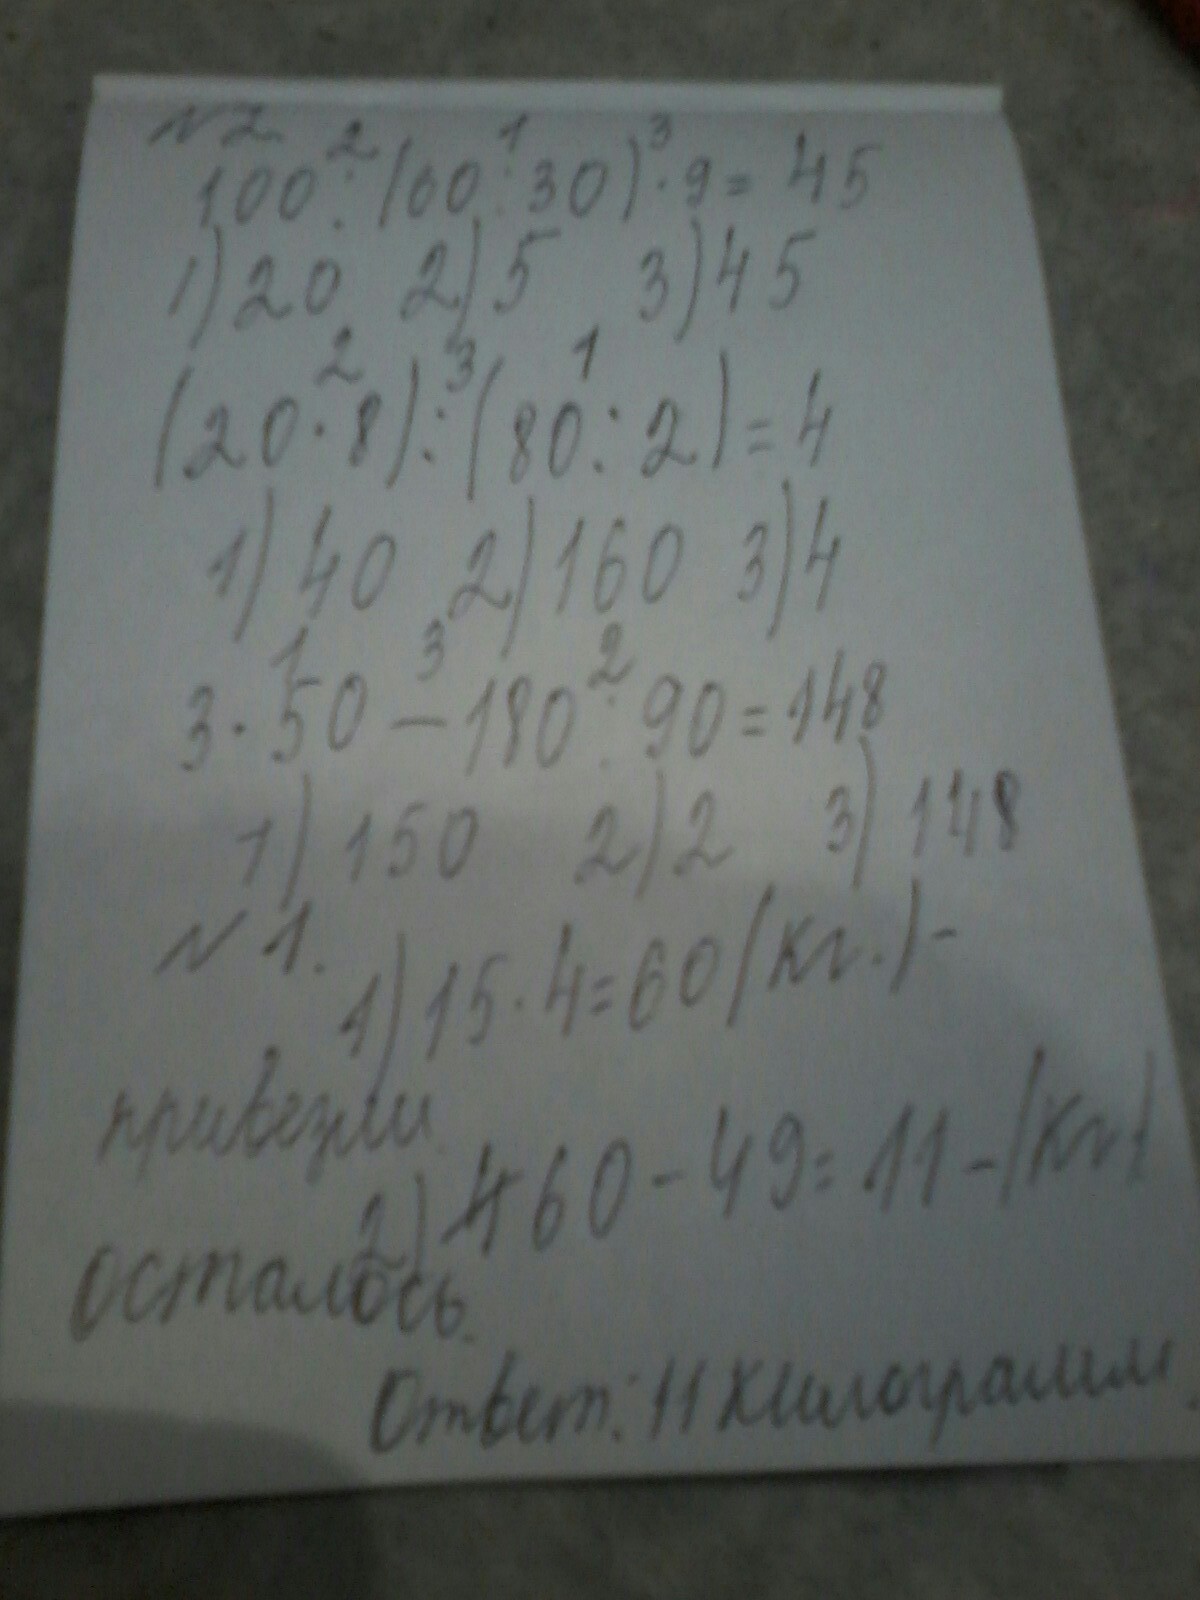 №2
100 : (60 : 30) · 9 = 45
1) 20 2) 5 3) 45
(20 · 8) : (80 : 2) = 4
1) 40 2) 160 3) 4
3 · 50 – 180 : 90 = 148
1) 150 2) 2 3) 148
№1.
1) 15 · 4 = 60 (кг.) -
привезли
2) 460 - 49 = 11 - (кг)
осталось.
Ответ: 11 килограмм.